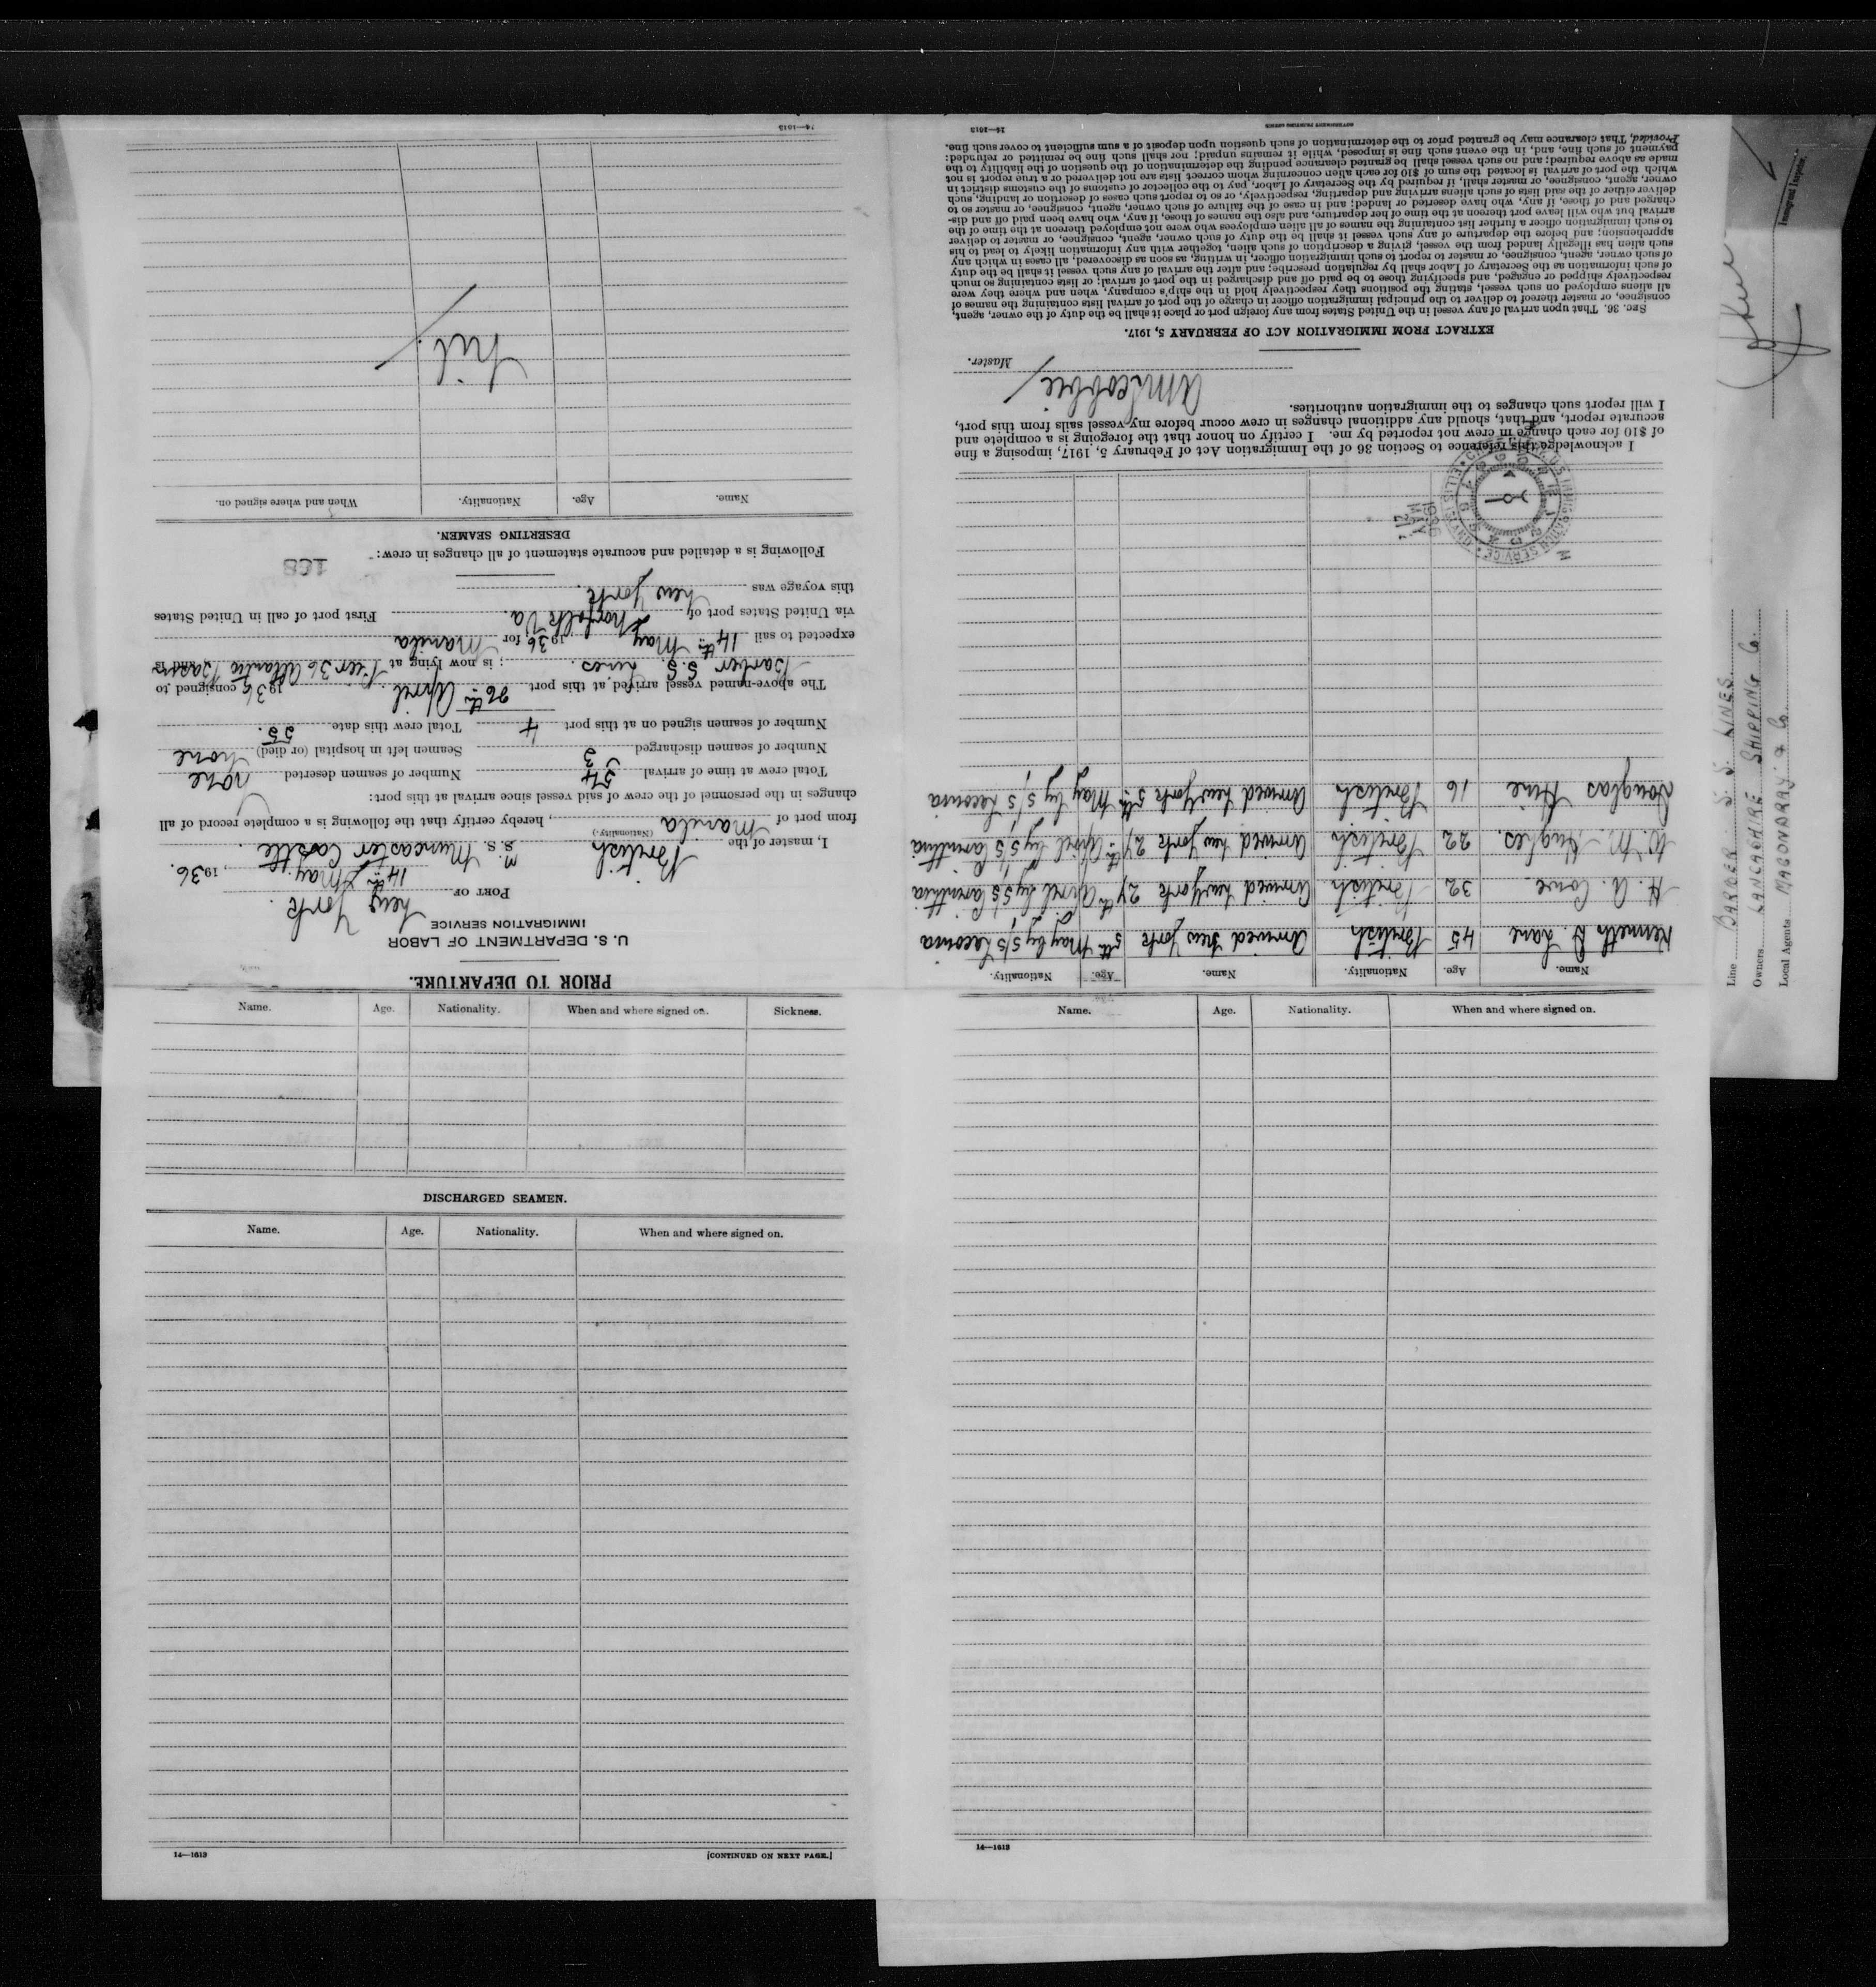 PRIOR TO DEPARTURE.
U. S. DEPARTMENT OF LABOR
IMMIGRATION SERVICE
PORT OF New York.
14th May, 1936.
I, master of the British S. S. Muncaster Castle.
M.
(Nationality.)
from port of Manila, hereby certify that the following is a complete record of all
changes in the personnel of the crew of said vessel since arrival at this port:
Total crew at time of arrival 54 Number of seamen deserted none
Number of seamen discharged 3 Seamen left in hospital (or died) none
Number of seamen signed on at this port 4 Total crew this date 55.
The above-named vessel arrived at this port 26th April. 1936 consigned to
Barber S.S. Lines. ; is now lying at Pier 36 Atlantic Basin and is
expected to sail 14th May 1936 for Manila
via United States port of Norfolk Va. First port of call in United States
this voyage was New York.
Following is a detailed and accurate statement of all changes in crew:
168
DESERTING SEAMEN.
Name. Age. Nationality. When and where signed on.
Nil.
14—1613
Name. Age. Nationality. Name. Age. Nationality.
Kenneth D. Lane 45 British Arrived New York 5th May by S/S Laconia
H. A. Cowe. 32 British Arrived New York 27th April by S/S Carinthia
W. M. Hughes. 22 British Arrived New York 27th April by S/S Carinthia
Douglas Hine 16 British Arrived New York 5th May by S/S Laconia
I acknowledge this reference to Section 36 of the Immigration Act of February 5, 1917, imposing a fine
of $10 for each change in crew not reported by me. I certify on honor that the foregoing is a complete and
accurate report, and that, should any additional changes in crew occur before my vessel sails from this port,
I will report such changes to the immigration authorities.
Master.
EXTRACT FROM IMMIGRATION ACT OF FEBRUARY 5, 1917.
SEC. 36. That upon arrival of any vessel in the United States from any foreign port or place it shall be the duty of the owner, agent,
consignee, or master thereof to deliver to the principal immigration officer in charge of the port of arrival lists containing the names of
all aliens employed on such vessel, stating the positions they respectively hold in the ship's company, when and where they were
respectively shipped or engaged, and specifying those to be paid off and discharged in the port of arrival; or lists containing so much
of such information as the Secretary of Labor shall by regulation prescribe; and after the arrival of any such vessel it shall be the duty
of such owner, agent, consignee, or master to report to such immigration officer, in writing, as soon as discovered, all cases in which any
such alien has illegally landed from the vessel, giving a description of such alien, together with any information likely to lead to his
apprehension; and before the departure of any such vessel it shall be the duty of such owner, agent, consignee, or master to deliver
to such immigration officer a further list containing the names of all alien employees who were not employed thereon at the time of the
arrival but who will leave port thereon at the time of her departure, and also the names of those, if any, who have been paid off and dis-
charged and of those, if any, who have deserted or landed; and in case of the failure of such owner, agent, consignee, or master so to
deliver either of the said lists of such aliens arriving and departing, respectively, or so to report such cases of desertion or landing, such
owner, agent, consignee, or master shall, if required by the Secretary of Labor, pay to the collector of customs of the customs district in
which the port of arrival is located the sum of $10 for each alien concerning whom correct lists are not delivered or a true report is not
made as above required; and no such vessel shall be granted clearance pending the determination of the question of the liability to the
payment of such fine, and, in the event such fine is imposed, while it remains unpaid; nor shall such fine be remitted or refunded:
Provided, That clearance may be granted prior to the determination of such question upon deposit of a sum sufficient to cover such fine.
14—1613
GOVERNMENT PRINTING OFFICE
Name. Age. Nationality. When and where signed on. Sickness.
DISCHARGED SEAMEN.
Name. Age. Nationality. When and where signed on.
14—1613
[CONTINUED ON NEXT PAGE.]
Name. Age. Nationality. When and where signed on.
14—1613
Line BARBER S. S. LINES
Owners LANCASHIRE SHIPPING Co.
Local Agents MACONDRAY & Co.
Immigrant Inspector.